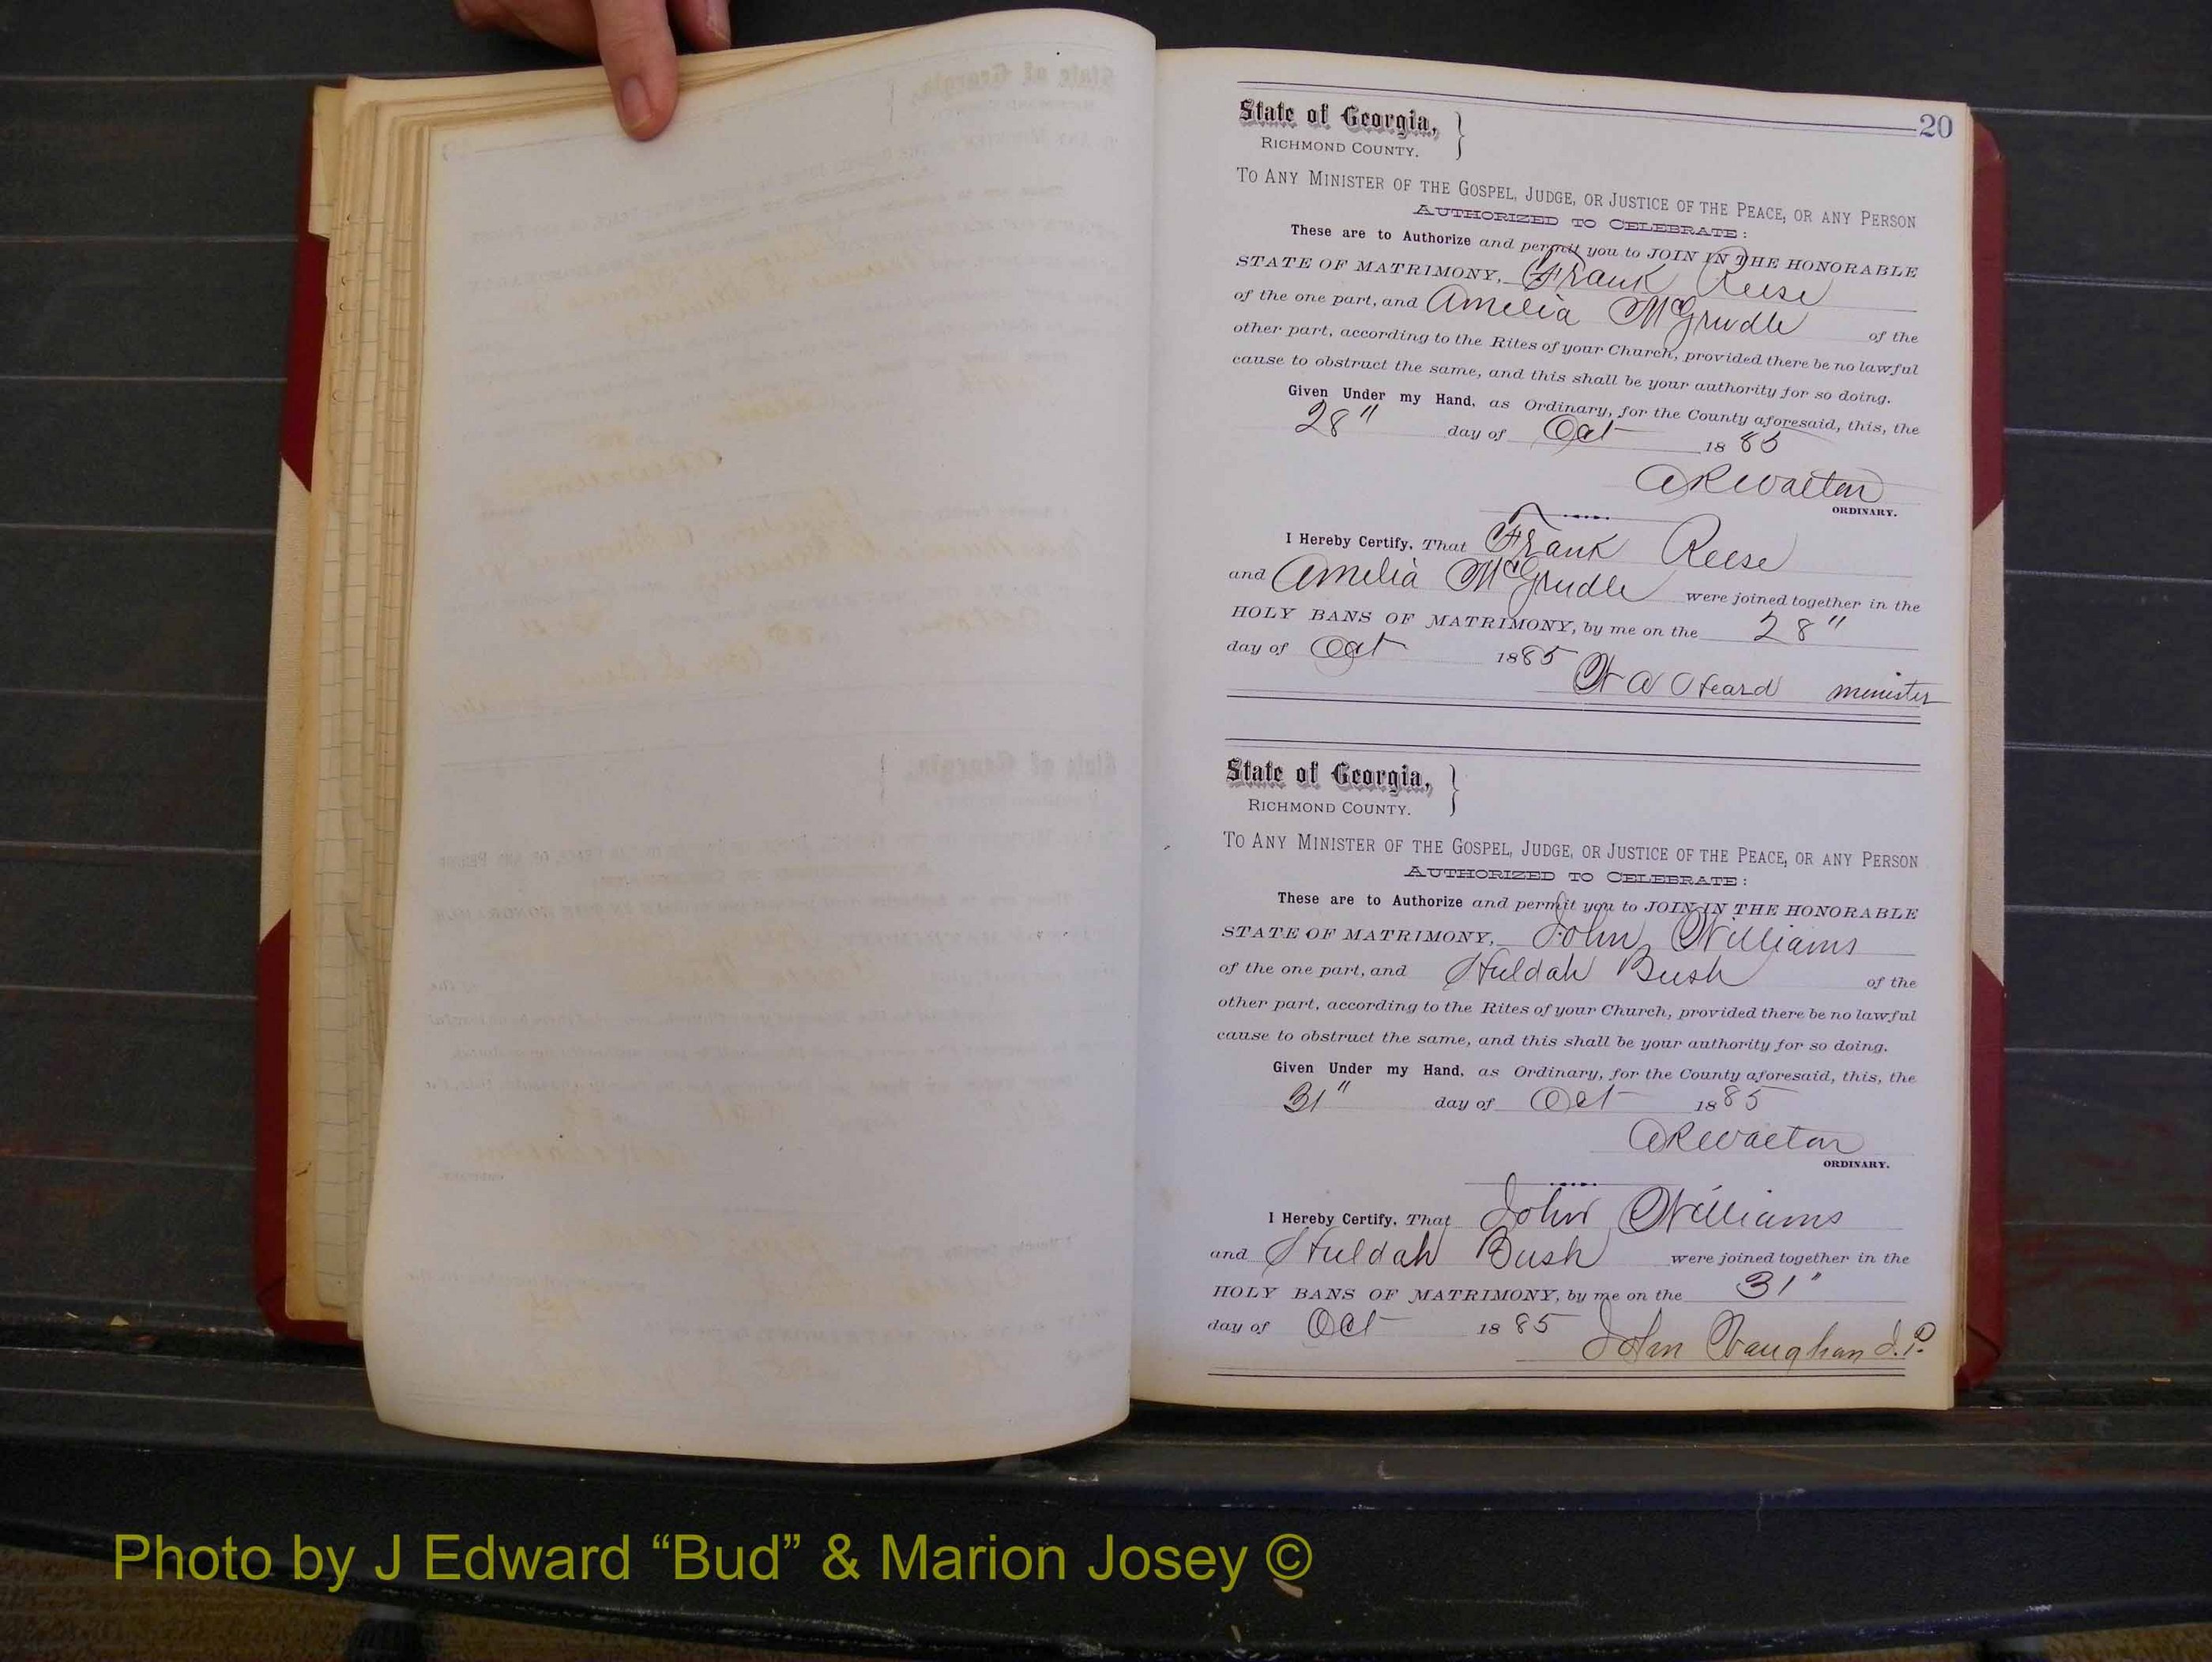 20
State of Georgia,
RICHMOND COUNTY.
TO ANY MINISTER OF THE GOSPEL, JUDGE, OR JUSTICE OF THE PEACE, OR ANY PERSON
AUTHORIZED TO CELEBRATE:
These are to Authorize and permit you to JOIN IN THE HONORABLE
STATE OF MATRIMONY, Frank Reese
of the one part, and Amelia McGrudle of the
other part, according to the Rites of your Church, provided there be no lawful
cause to obstruct the same, and this shall be your authority for so doing.
Given Under my Hand, as Ordinary, for the County aforesaid, this, the
28" day of Oct 1885
A R Walton
ORDINARY.
I Hereby Certify, That Frank Reese
and Amelia McGrudle were joined together in the
HOLY BANS OF MATRIMONY, by me on the 28"
day of Oct 1885
W A Heard minister
State of Georgia,
RICHMOND COUNTY.
TO ANY MINISTER OF THE GOSPEL, JUDGE, OR JUSTICE OF THE PEACE, OR ANY PERSON
AUTHORIZED TO CELEBRATE:
These are to Authorize and permit you to JOIN IN THE HONORABLE
STATE OF MATRIMONY, John Williams
of the one part, and Huldah Bush of the
other part, according to the Rites of your Church, provided there be no lawful
cause to obstruct the same, and this shall be your authority for so doing.
Given Under my Hand, as Ordinary, for the County aforesaid, this, the
31" day of Oct 1885
A R Walton
ORDINARY.
I Hereby Certify, That John Williams
and Huldah Bush were joined together in the
HOLY BANS OF MATRIMONY, by me on the 31"
day of Oct 1885
John Vaughan J.P.
Photo by J Edward “Bud” & Marion Josey ©